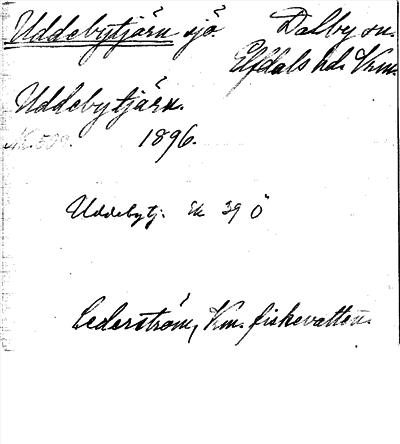 Uddebytjärn sjö. Dalby sn.
Elfdals hd. Vrm.
Uddebytjärn.
1896.
Uddebytj. Ek 39 Ö
Cederström, Vrm. fiskevatten.